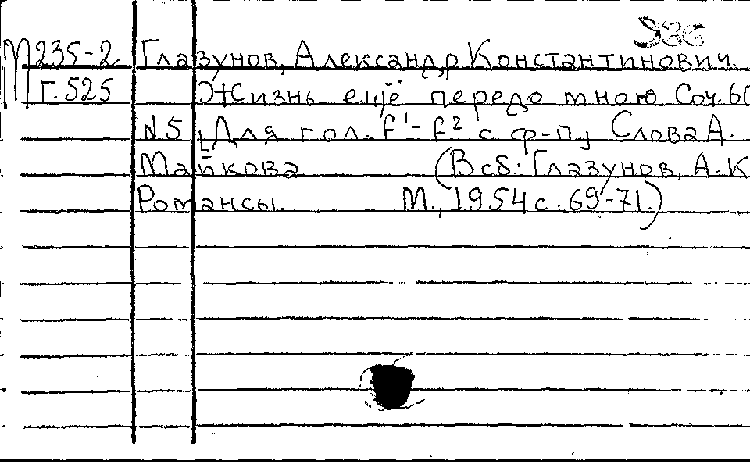 М235-2 Глазунов, Александр Константинович.
Г.525 Жизнь ещё передо мною Соч. 60
N.5 [Для гол. f¹-f² с ф-п.] Слова А.
Майкова (В сб: Глазунов, А.К
Романсы. М., 1954 с. 69-71.)